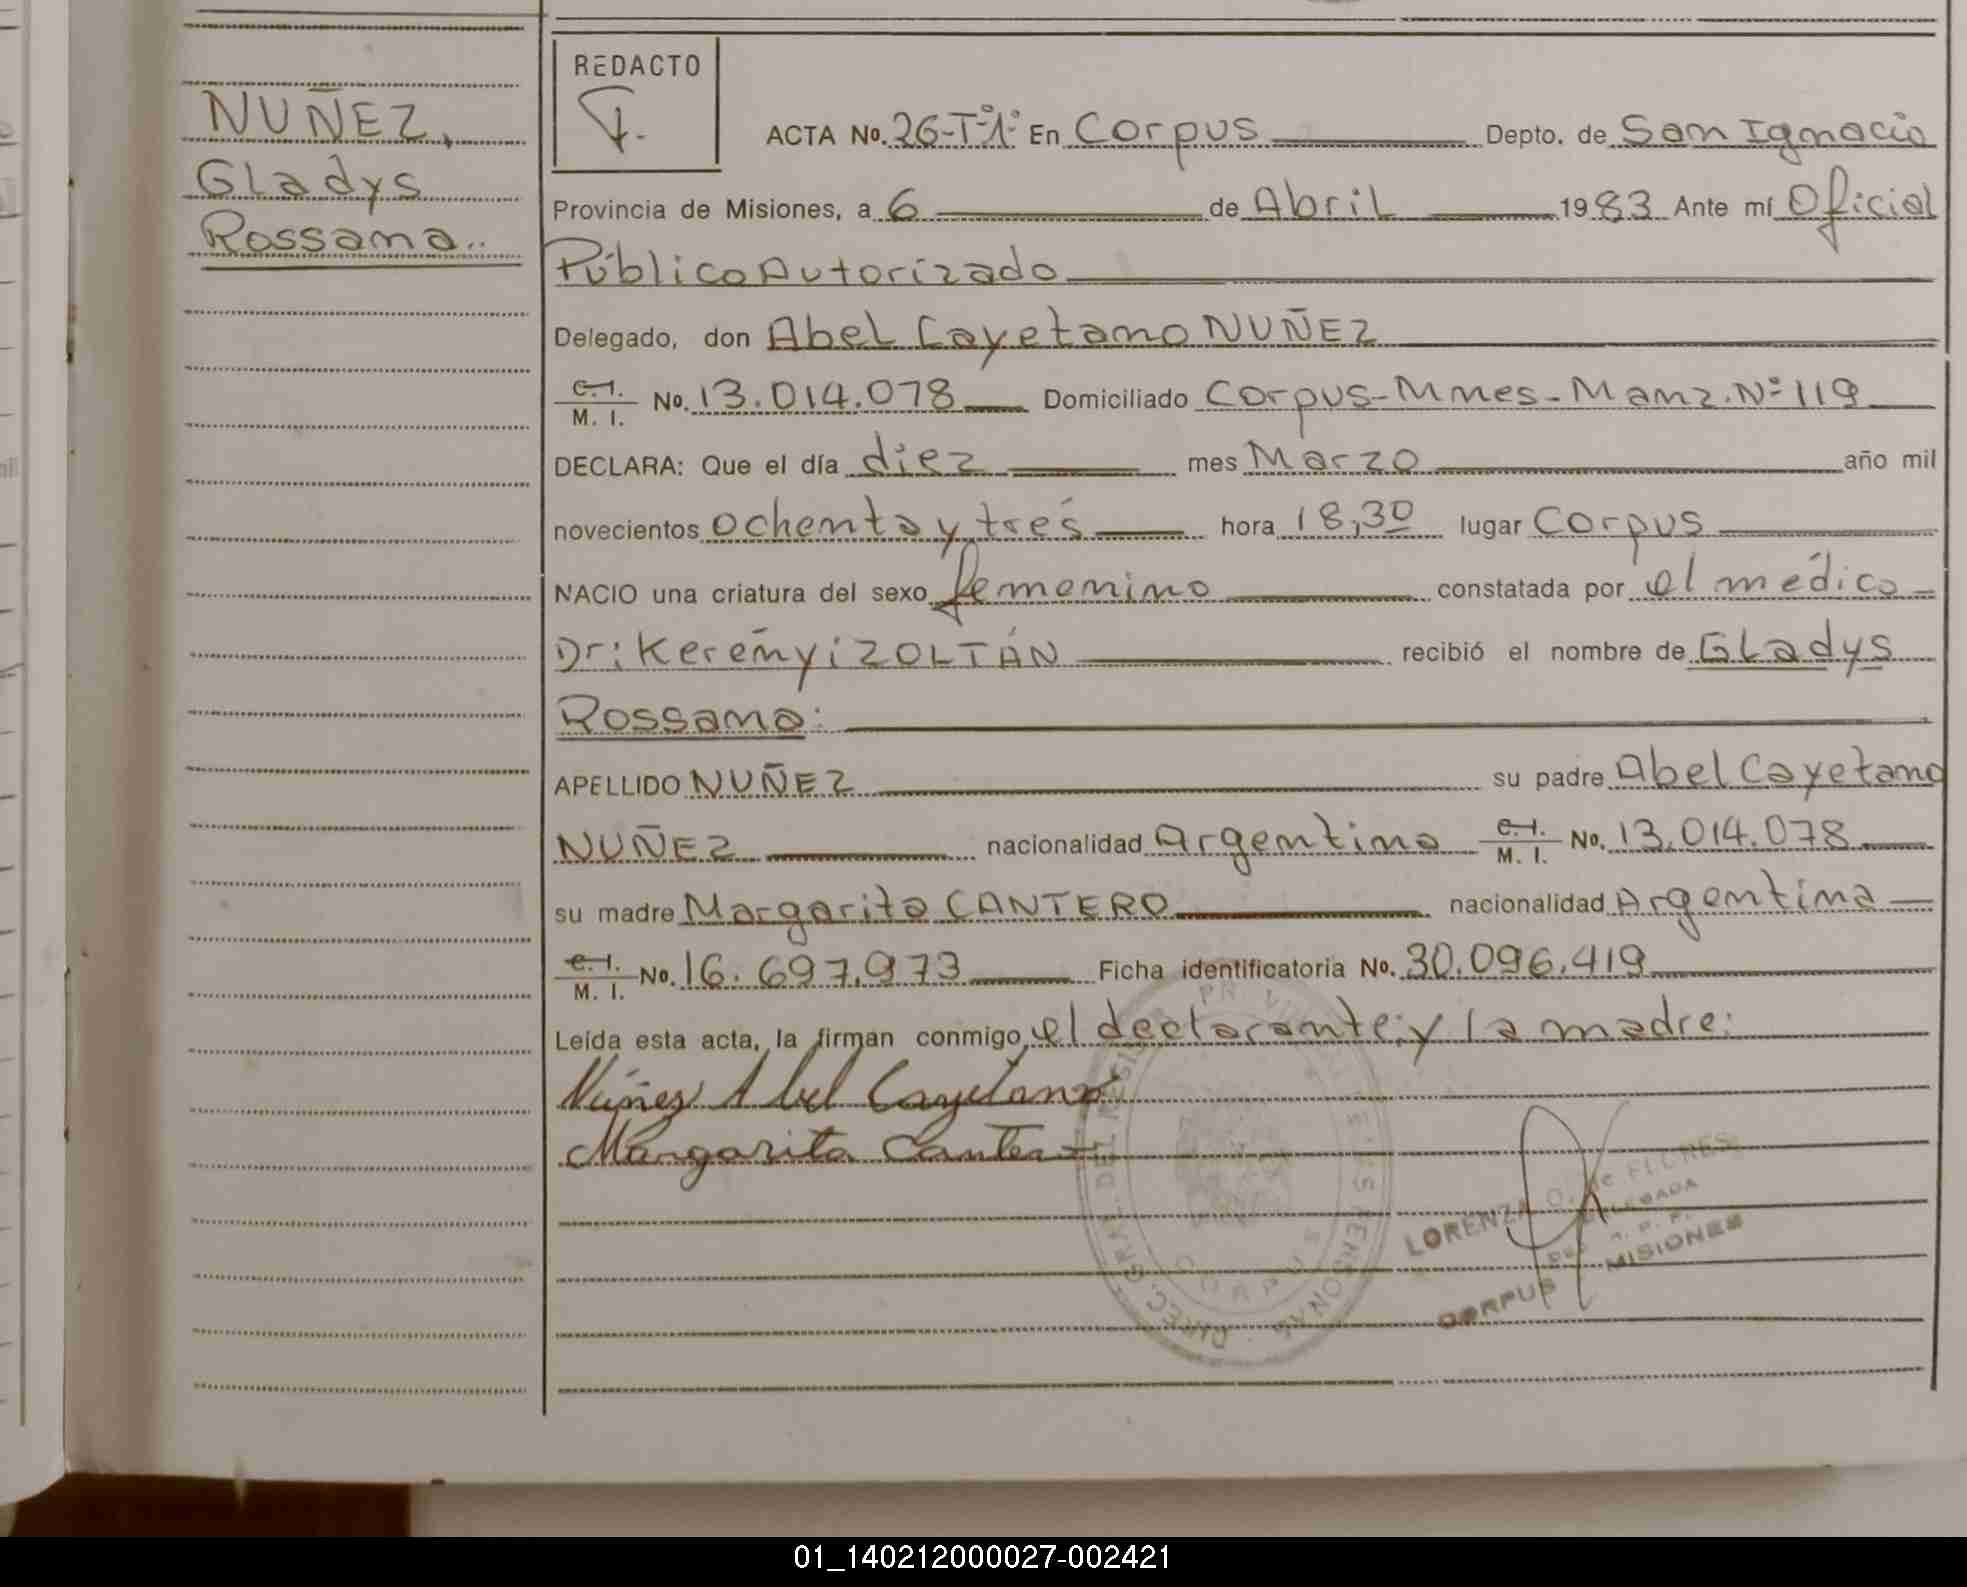 NUÑEZ,
Gladys
Rossana..
REDACTO
ACTA No. 26-Tº1º En Corpus Depto. de San Ignacio
Provincia de Misiones, a 6 de Abril 1983 Ante mí Oficial
Público Autorizado
Delegado, don Abel Cayetano NUÑEZ
C.I. M. I. No. 13.014.078 Domiciliado Corpus-Mnes-Manz.Nº119
DECLARA: Que el día diez mes Marzo año mil
novecientos ochenta y trés hora 18,30 lugar Corpus
NACIO una criatura del sexo femenino constatada por el médico
Dr: Kerényi ZOLTÁN recibió el nombre de Gladys
Rossana:
APELLIDO NUÑEZ su padre Abel Cayetano
NUÑEZ nacionalidad Argentina C.I. M. I. No. 13.014.078
su madre Margarita CANTERO nacionalidad Argentina
C.I. M. I. No. 16.697.973 Ficha identificatoria No. 30.096.419
Leída esta acta, la firman conmigo, el declarante; y la madre:
Núñez Abel Cayetano
Margarita Cantero
DIREC. GRAL. DEL REGISTRO PR VINCIAL DE LAS PERSONAS
CORPUS
LORENZA O. de FLORES
DELEGADA
REG. P. P.
CORPUS MISIONES
01_140212000027-002421